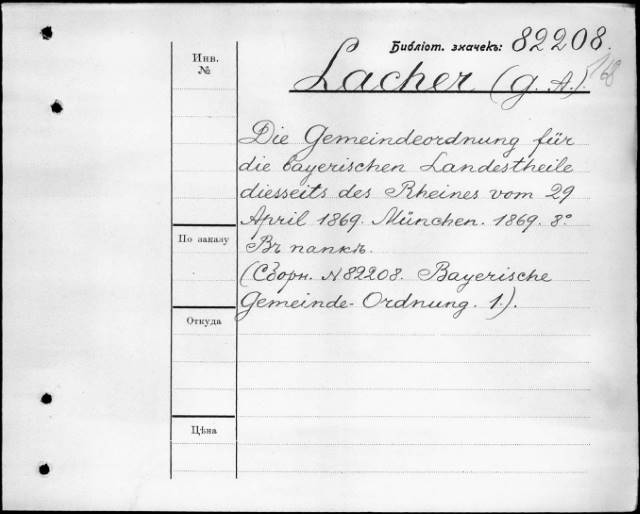 Библіот. значекъ: 82208.
Инв.
№
Lacher (G. A.).
Die Gemeindeordnung für
die bayerischen Landestheile
diesseits des Rheines vom 29
April 1869. München. 1869. 8°
По заказу
Въ папкѣ.
(Сборн. №82208. Bayerische
Gemeinde-Ordnung. 1.).
Откуда
Цѣна